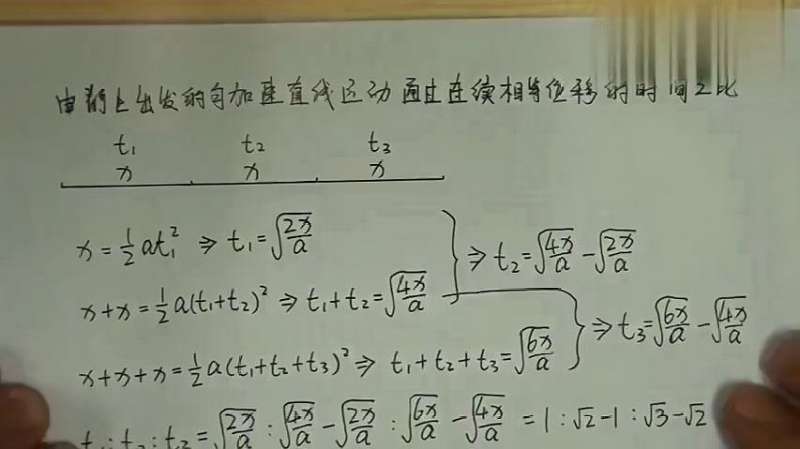 由静止出发的匀加速直线运动通过连续相等位移的时间之比
t₁ t₂ t₃
x x x
x=½at₁² ⇒ t₁=√(2x/a)
⇒ t₂=√(4x/a)-√(2x/a)
x+x=½a(t₁+t₂)² ⇒ t₁+t₂=√(4x/a)
⇒ t₃=√(6x/a)-√(4x/a)
x+x+x=½a(t₁+t₂+t₃)² ⇒ t₁+t₂+t₃=√(6x/a)
t₁:t₂:t₃=√(2x/a):√(4x/a)-√(2x/a):√(6x/a)-√(4x/a)=1:√2-1:√3-√2